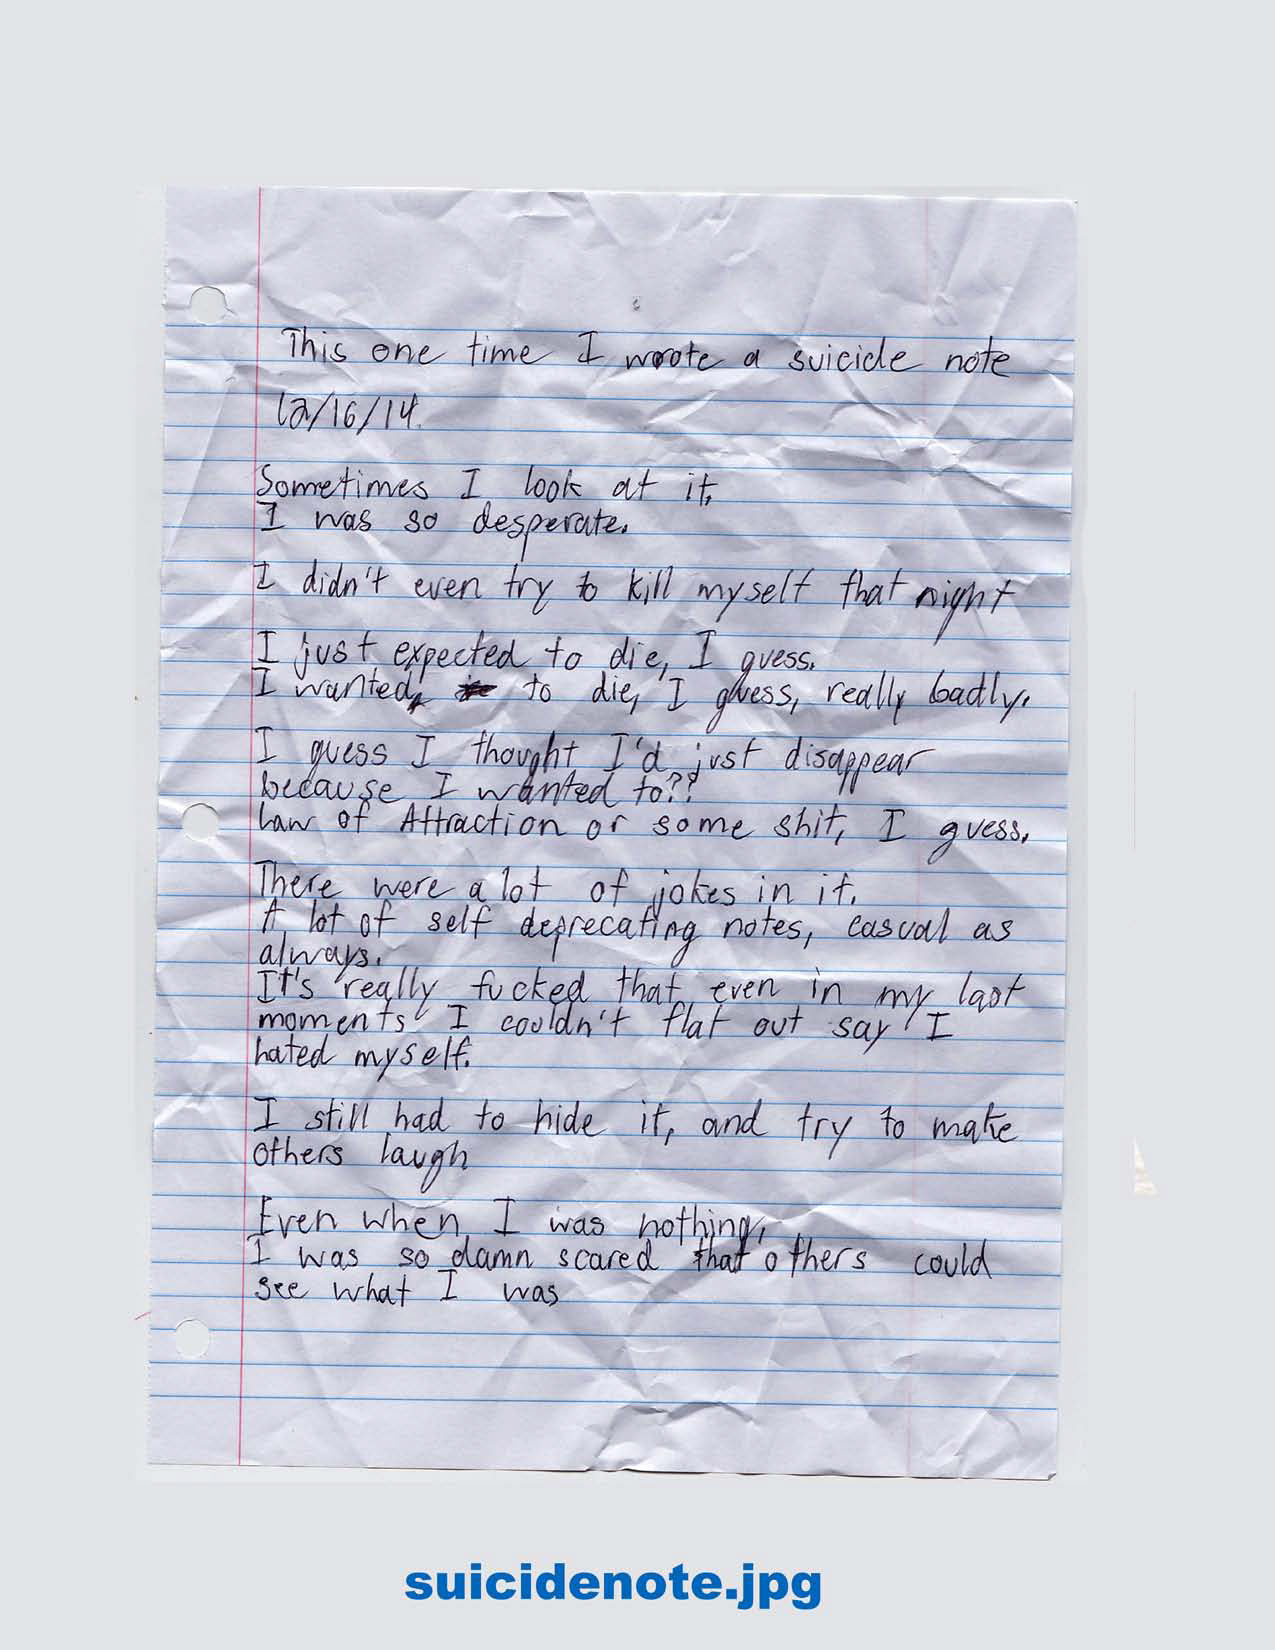 This one time I wrote a suicide note
12/16/14.
Sometimes I look at it.
I was so desperate.
I didn't even try to kill myself that night
I just expected to die, I guess.
I wanted to die, I guess, really badly.
I guess I thought I'd just disappear
because I wanted to??
Law of Attraction or some shit, I guess.
There were a lot of jokes in it.
A lot of self deprecating notes, casual as
always.
It's really fucked that even in my last
moments I couldn't flat out say I
hated myself.
I still had to hide it, and try to make
others laugh
Even when I was nothing,
I was so damn scared that others could
see what I was
suicidenote.jpg